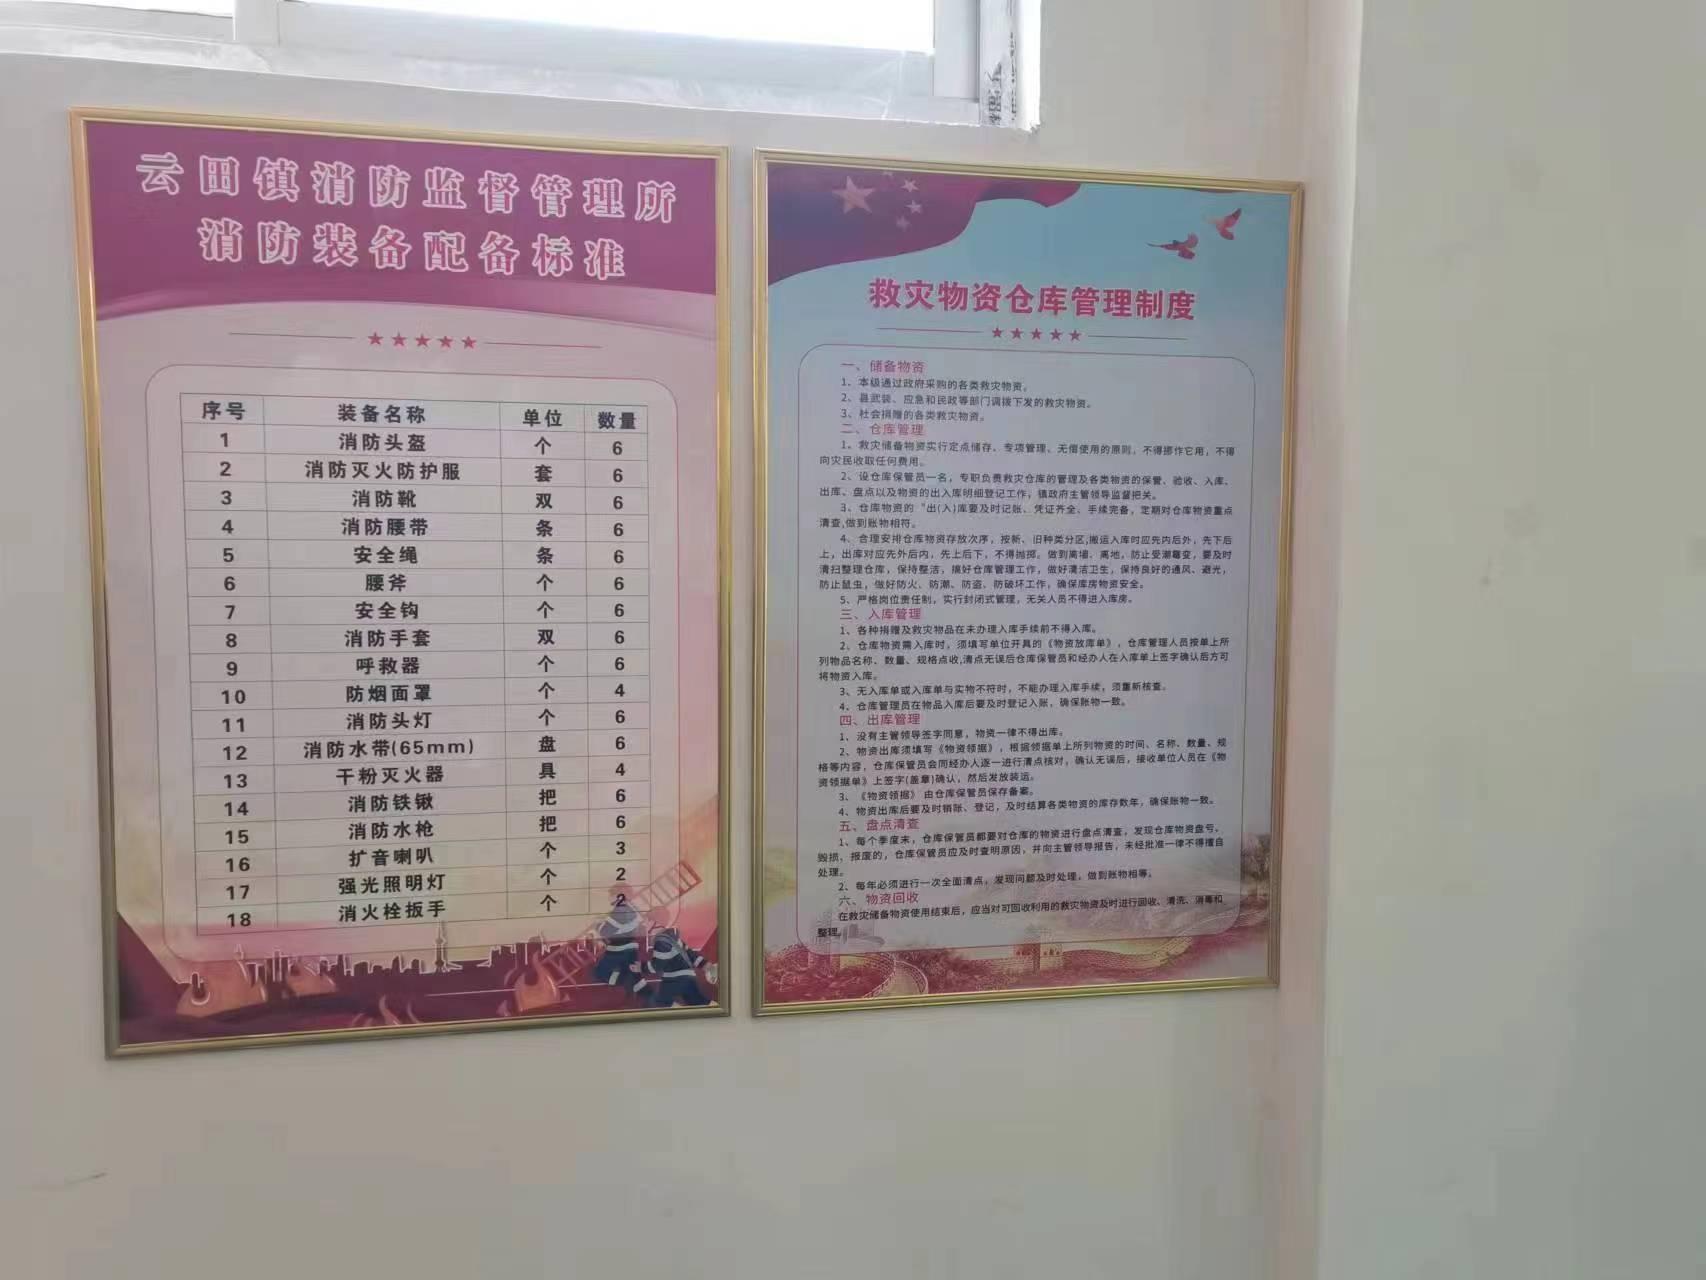 云田镇消防监督管理所
消防装备配备标准
序号 装备名称 单位 数量
1 消防头盔 个 6
2 消防灭火防护服 套 6
3 消防靴 双 6
4 消防腰带 条 6
5 安全绳 条 6
6 腰斧 个 6
7 安全钩 个 6
8 消防手套 双 6
9 呼救器 个 6
10 防烟面罩 个 4
11 消防头灯 个 6
12 消防水带(65mm) 盘 6
13 干粉灭火器 具 4
14 消防铁锹 把 6
15 消防水枪 把 6
16 扩音喇叭 个 3
17 强光照明灯 个 2
18 消火栓扳手 个 2
救灾物资仓库管理制度
一、储备物资
1、本级通过政府采购的各类救灾物资。
2、县武装、应急和民政等部门调拨下发的救灾物资。
3、社会捐赠的各类救灾物资。
二、仓库管理
1、救灾储备物资实行定点储存、专项管理、无偿使用的原则，不得挪作它用，不得
向灾民收取任何费用。
2、设仓库保管员一名，专职负责救灾仓库的管理及各类物资的保管、验收、入库、
出库、盘点以及物资的出入库明细登记工作，镇政府主管领导监督把关。
3、仓库物资的“出(入)库要及时记账、凭证齐全、手续完备，定期对仓库物资重点
清查,做到账物相符。
4、合理安排仓库物资存放次序，按新、旧种类分区,搬运入库时应先内后外，先下后
上，出库对应先外后内，先上后下，不得抛掷。做到离墙、离地，防止受潮霉变，要及时
清扫整理仓库，保持整洁，搞好仓库管理工作，做好清洁卫生，保持良好的通风、避光，
防止鼠虫，做好防火、防潮、防盗、防破坏工作，确保库房物资安全。
5、严格岗位责任制，实行封闭式管理，无关人员不得进入库房。
三、入库管理
1、各种捐赠及救灾物品在未办理入库手续前不得入库。
2、仓库物资需入库时，须填写单位开具的《物资放库单》，仓库管理人员按单上所
列物品名称、数量、规格点收,清点无误后仓库保管员和经办人在入库单上签字确认后方可
将物资入库。
3、无入库单或入库单与实物不符时，不能办理入库手续，须重新核查。
4、仓库管理员在物品入库后要及时登记入账，确保账物一致。
四、出库管理
1、没有主管领导签字同意，物资一律不得出库。
2、物资出库须填写《物资领据》，根据领据单上所列物资的时间、名称、数量、规
格等内容，仓库保管员会同经办人逐一进行清点核对，确认无误后，接收单位人员在《物
资领据单》上签字(盖章)确认，然后发放装运。
3、《物资领据》由仓库保管员保存备案。
4、物资出库后要及时销账、登记，及时结算各类物资的库存数年，确保账物一致。
五、盘点清查
1、每个季度末，仓库保管员都要对仓库的物资进行盘点清查，发现仓库物资盘亏、
毁损、报废的，仓库保管员应及时查明原因，并向主管领导报告，未经批准一律不得擅自
处理。
2、每年必须进行一次全面清点，发现问题及时处理，做到账物相等。
六、物资回收
在救灾储备物资使用结束后，应当对可回收利用的救灾物资及时进行回收、清洗、消毒和
整理。